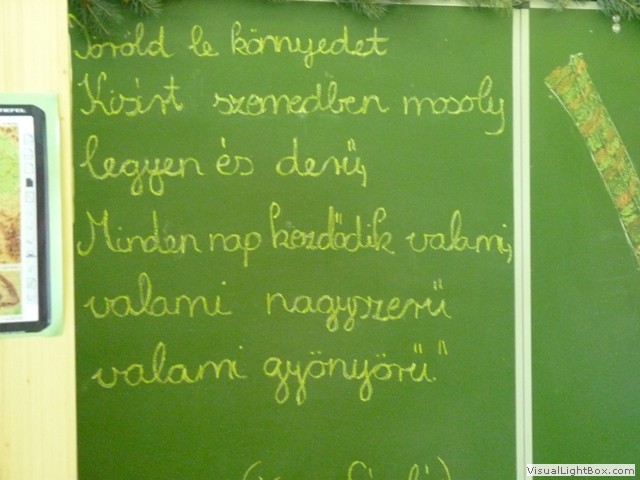 Töröld le könnyedet
Kisírt szemedben mosoly
legyen és derű,
Minden nap kezdődik valami,
valami nagyszerű
valami gyönyörű."
VisualLightBox.com